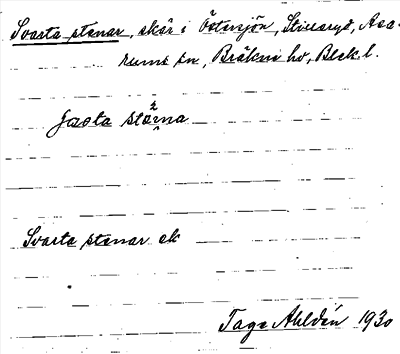 Svarta stenar, skär i Östersjön, Stillaryd, Asa-
rums sn, Bräkne hd, Blek. l.
stärna
Svarta stenar sk
Tage Ahldén 1930